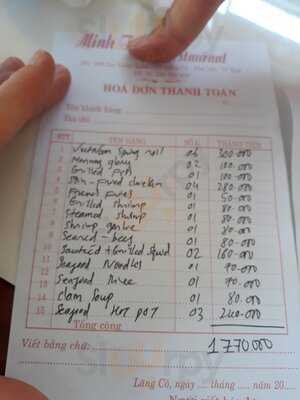 Minh Restaurant
HOÁ ĐƠN THANH TOÁN
Tên khách hàng
Địa chỉ
STT TÊN HÀNG SỐ L THÀNH TIỀN
1 Vietnam Spring roll 06 300.000
2 Morning glory 02 100.000
3 Grilled fish 01 100.000
4 Stir-fried chicken 04 280.000
5 French fries 01 50.000
6 Grilled shrimp 01 80.000
7 Steamed shrimp 01 80.000
8 Shrimp garlic 01 80.000
9 01 80.000
10 Sauteed + Grilled Squid 02 160.000
11 Seafood Noodles 01 70.000
12 Seafood Rice 01 70.000
14 Clam Soup 01 80.000
15 Seafood Hot pot 03 240.000
Tổng cộng
Viết bằng chữ: 1770000
Lăng Cô, ngày .... tháng .... năm 20....